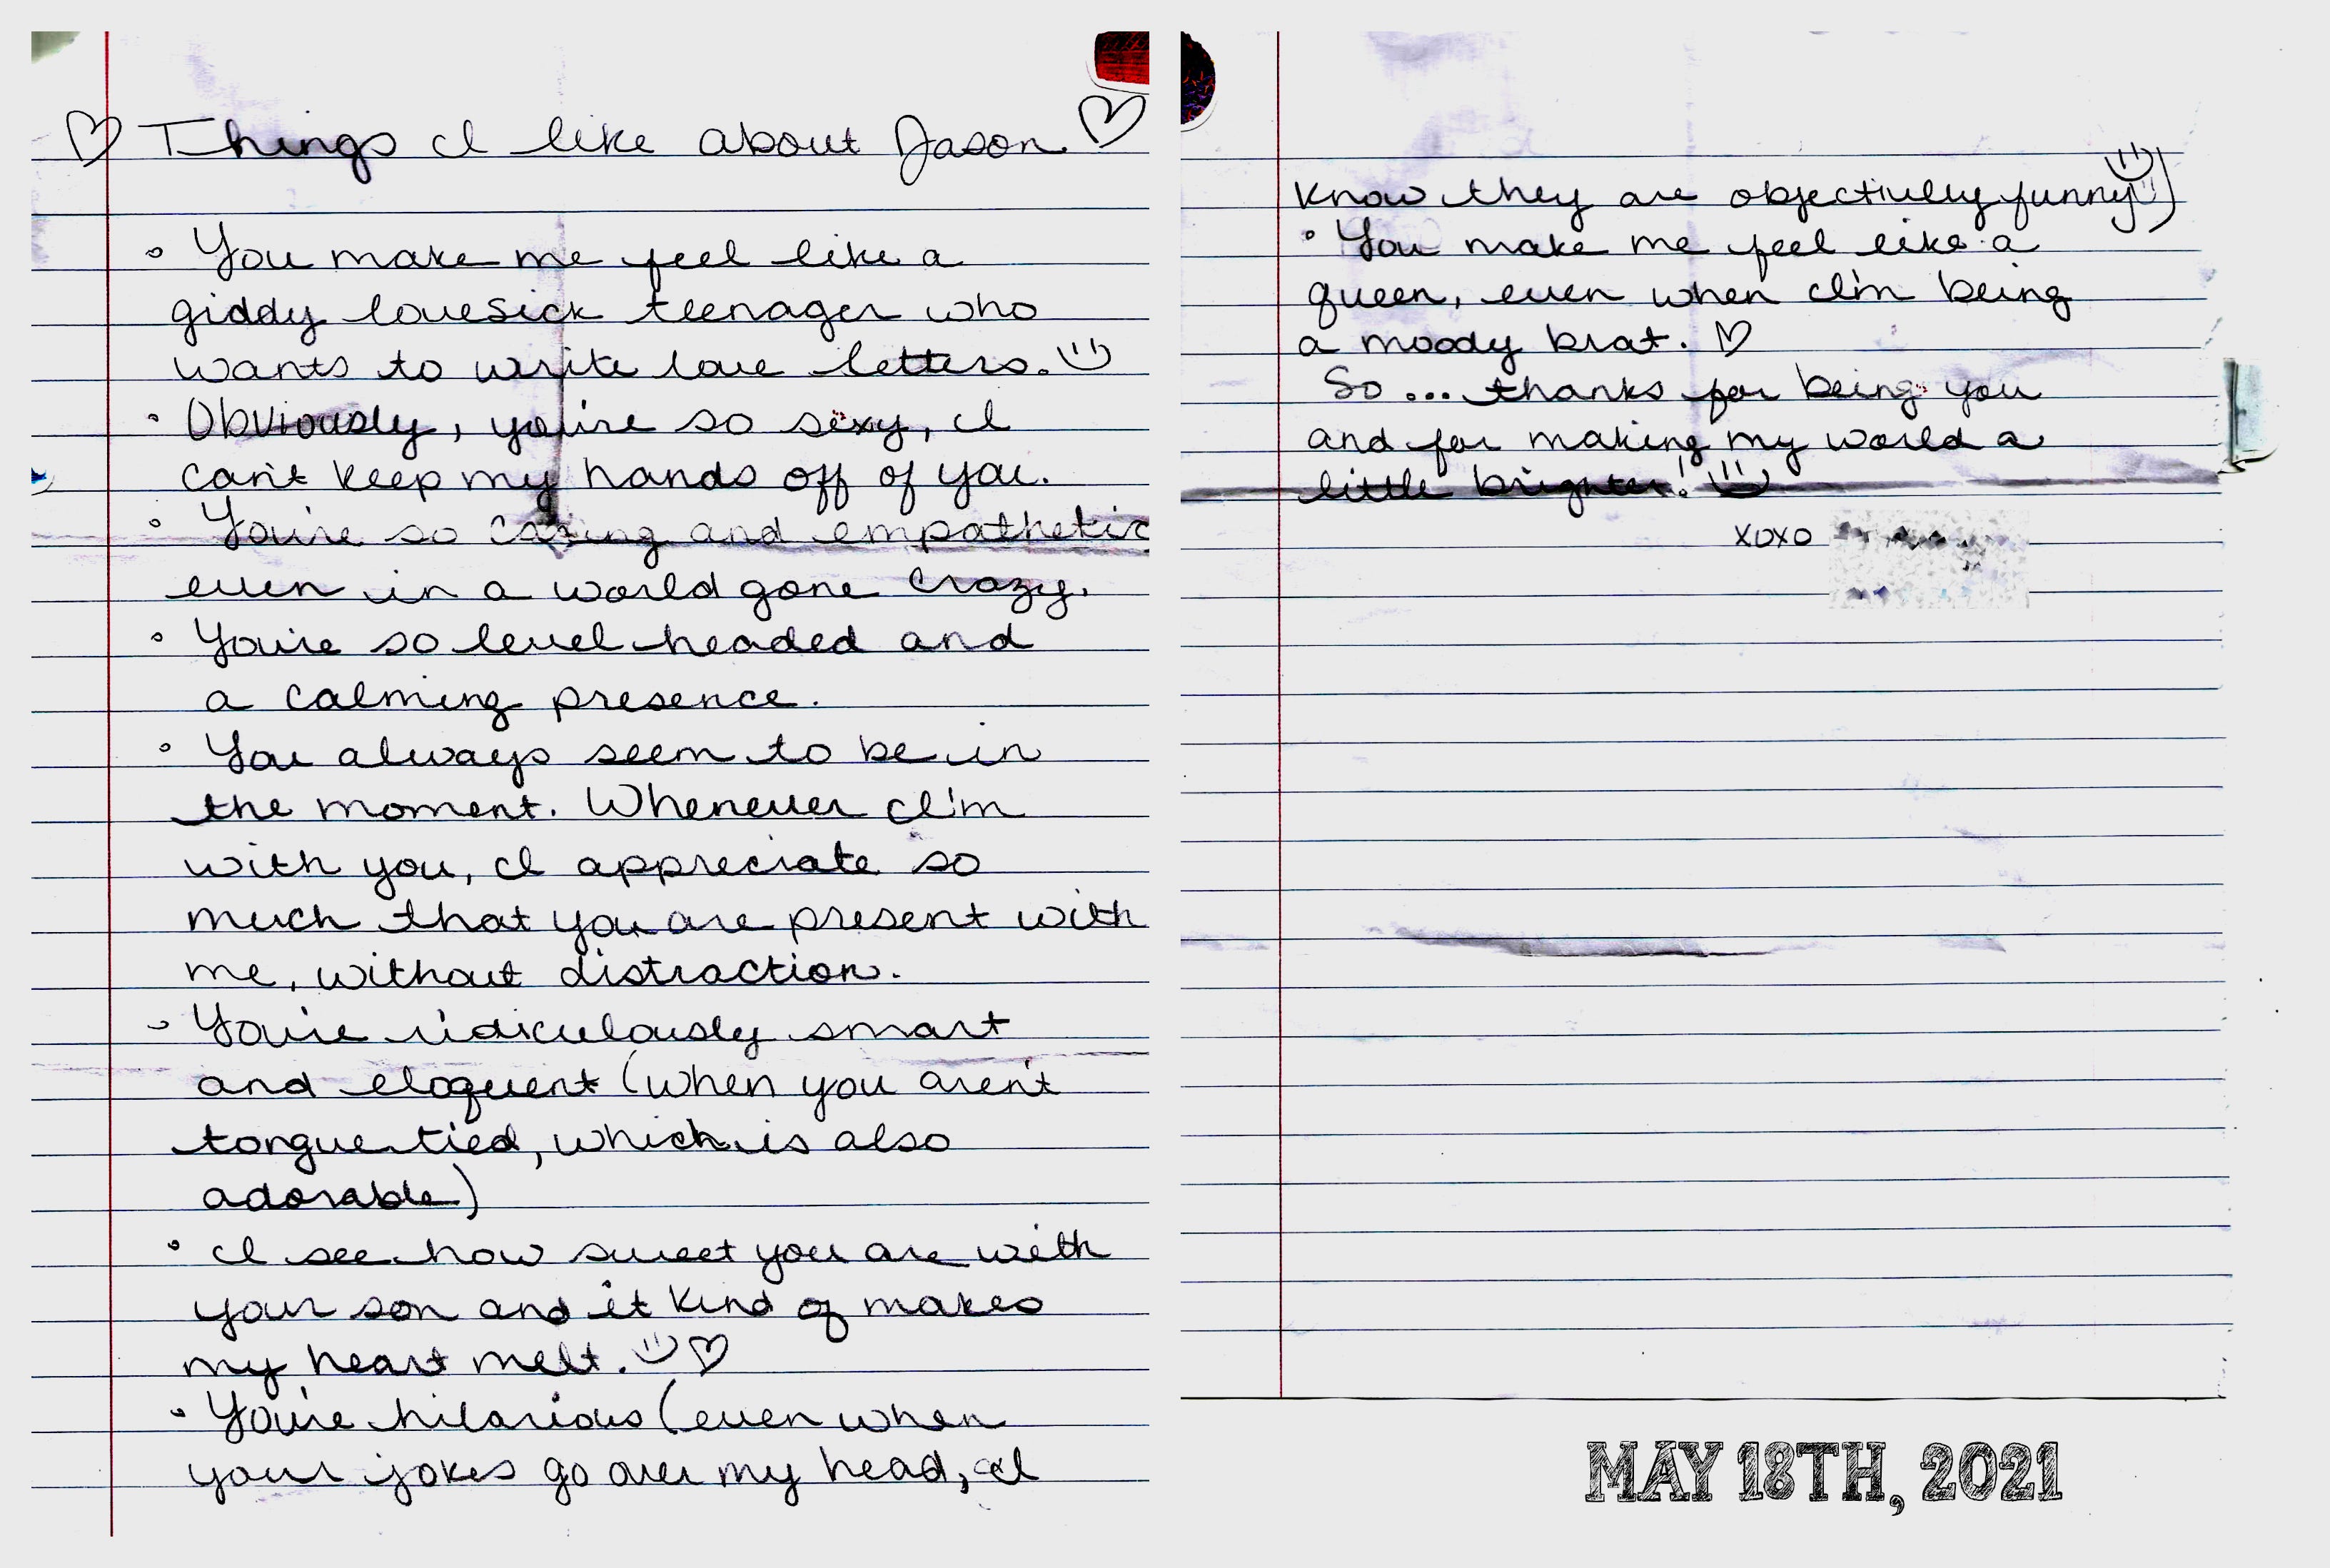 ♡ Things I like about Jason ♡
• You make me feel like a
giddy lovesick teenager who
wants to write love letters. :)
• Obviously, you're so sexy, I
can't keep my hands off of you.
• You're so caring and empathetic
even in a world gone crazy.
• You're so level-headed and
a calming presence.
• You always seem to be in
the moment. Whenever I'm
with you, I appreciate so
much that you are present with
me, without distraction.
• You're ridiculously smart
and eloquent (when you aren't
tongue-tied, which is also
adorable)
• I see how sweet you are with
your son and it kind of makes
my heart melt. :) ♡
• You're hilarious (even when
your jokes go over my head, I
know they are objectively funny :))
• You make me feel like a
queen, even when I'm being
a moody brat. ♡
So... thanks for being you
and for making my world a
little brighter! :)
xoxo
MAY 18TH, 2021